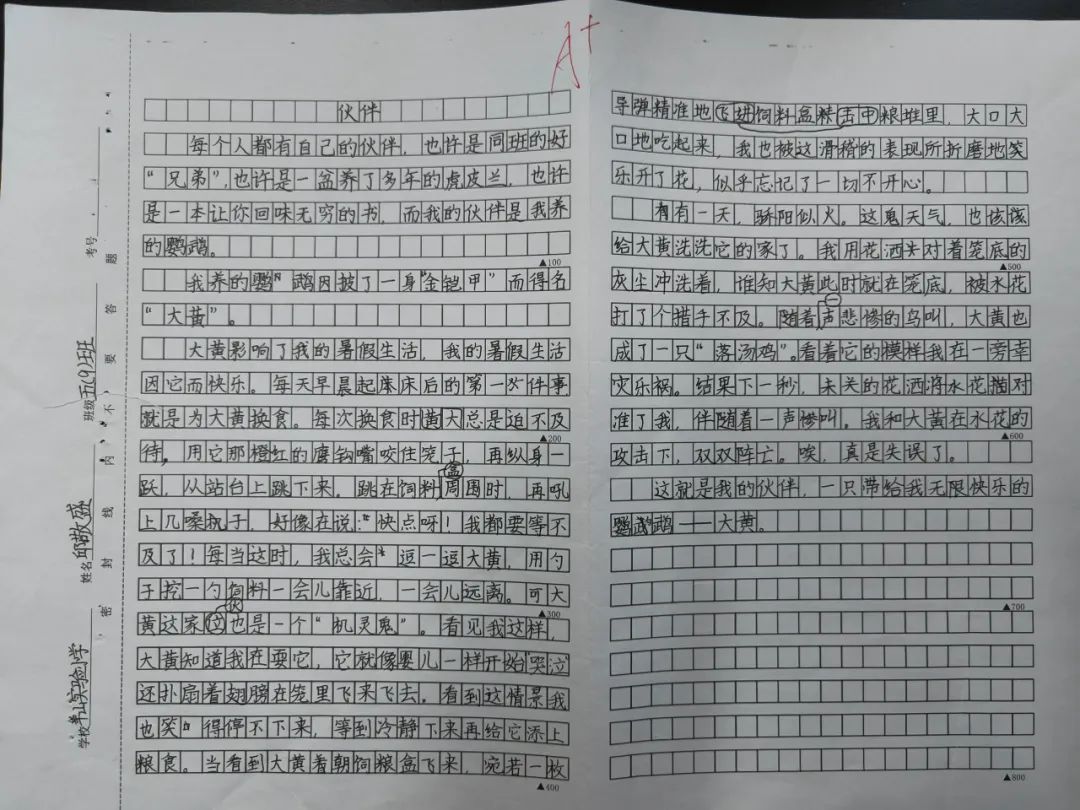 A+
伙伴
每个人都有自己的伙伴，也许是同班的好
“兄弟”，也许是一盆养了多年的虎皮兰，也许
是一本让你回味无穷的书，而我的伙伴是我养
的鹦鹉。
▲100
我养的鹦鹉因披了一身“金铠甲”而得名
“大黄”。
大黄影响了我的暑假生活，我的暑假生活
因它而快乐。每天早晨起床后的第一件事
就是为大黄换食。每次换食时黄大总是迫不及
▲200
待，用它那橙红的鹰钩嘴咬住笼子，再纵身一
跃，从站台上跳下来。跳在饲料盒周围时，再吼
上几嗓子，好像在说：“快点呀！我都要等不
及了！每当这时，我总会逗一逗大黄，用勺
子挖一勺饲料一会儿靠近，一会儿远离。可大
▲300
黄这家伙也是一个“机灵鬼”。看见我这样，
大黄知道我在耍它，它就像婴儿一样开始“哭泣”
还扑扇着翅膀在笼里飞来飞去。看到这情景我
也笑得停不下来，等到冷静下来再给它添上
粮食。当看到大黄着朝饲粮盒飞来，宛若一枚
▲400
导弹精准地飞进饲料盒击中粮堆里，大口大
口地吃起来，我也被这滑稽的表现所折磨地笑
乐开了花，似乎忘记了一切不开心。
有一天，骄阳似火。这鬼天气，也该
给大黄洗洗它的家了。我用花洒头对着笼底的
▲500
灰尘冲洗着，谁知大黄此时就在笼底，被水花
打了个措手不及。随着一声悲惨的鸟叫，大黄也
成了一只“落汤鸡”。看着它的模样我在一旁幸
灾乐祸。结果下一秒，未关的花洒将水花描对
准了我，伴随着一声惨叫。我和大黄在水花的
▲600
攻击下，双双阵亡。唉，真是失误了。
这就是我的伙伴，一只带给我无限快乐的
鹦鹉——大黄。
▲700
▲800
学校 实验学
姓名 邱敬盛
班级 五（9）班
考号
密 封 线 内 不 要 答 题